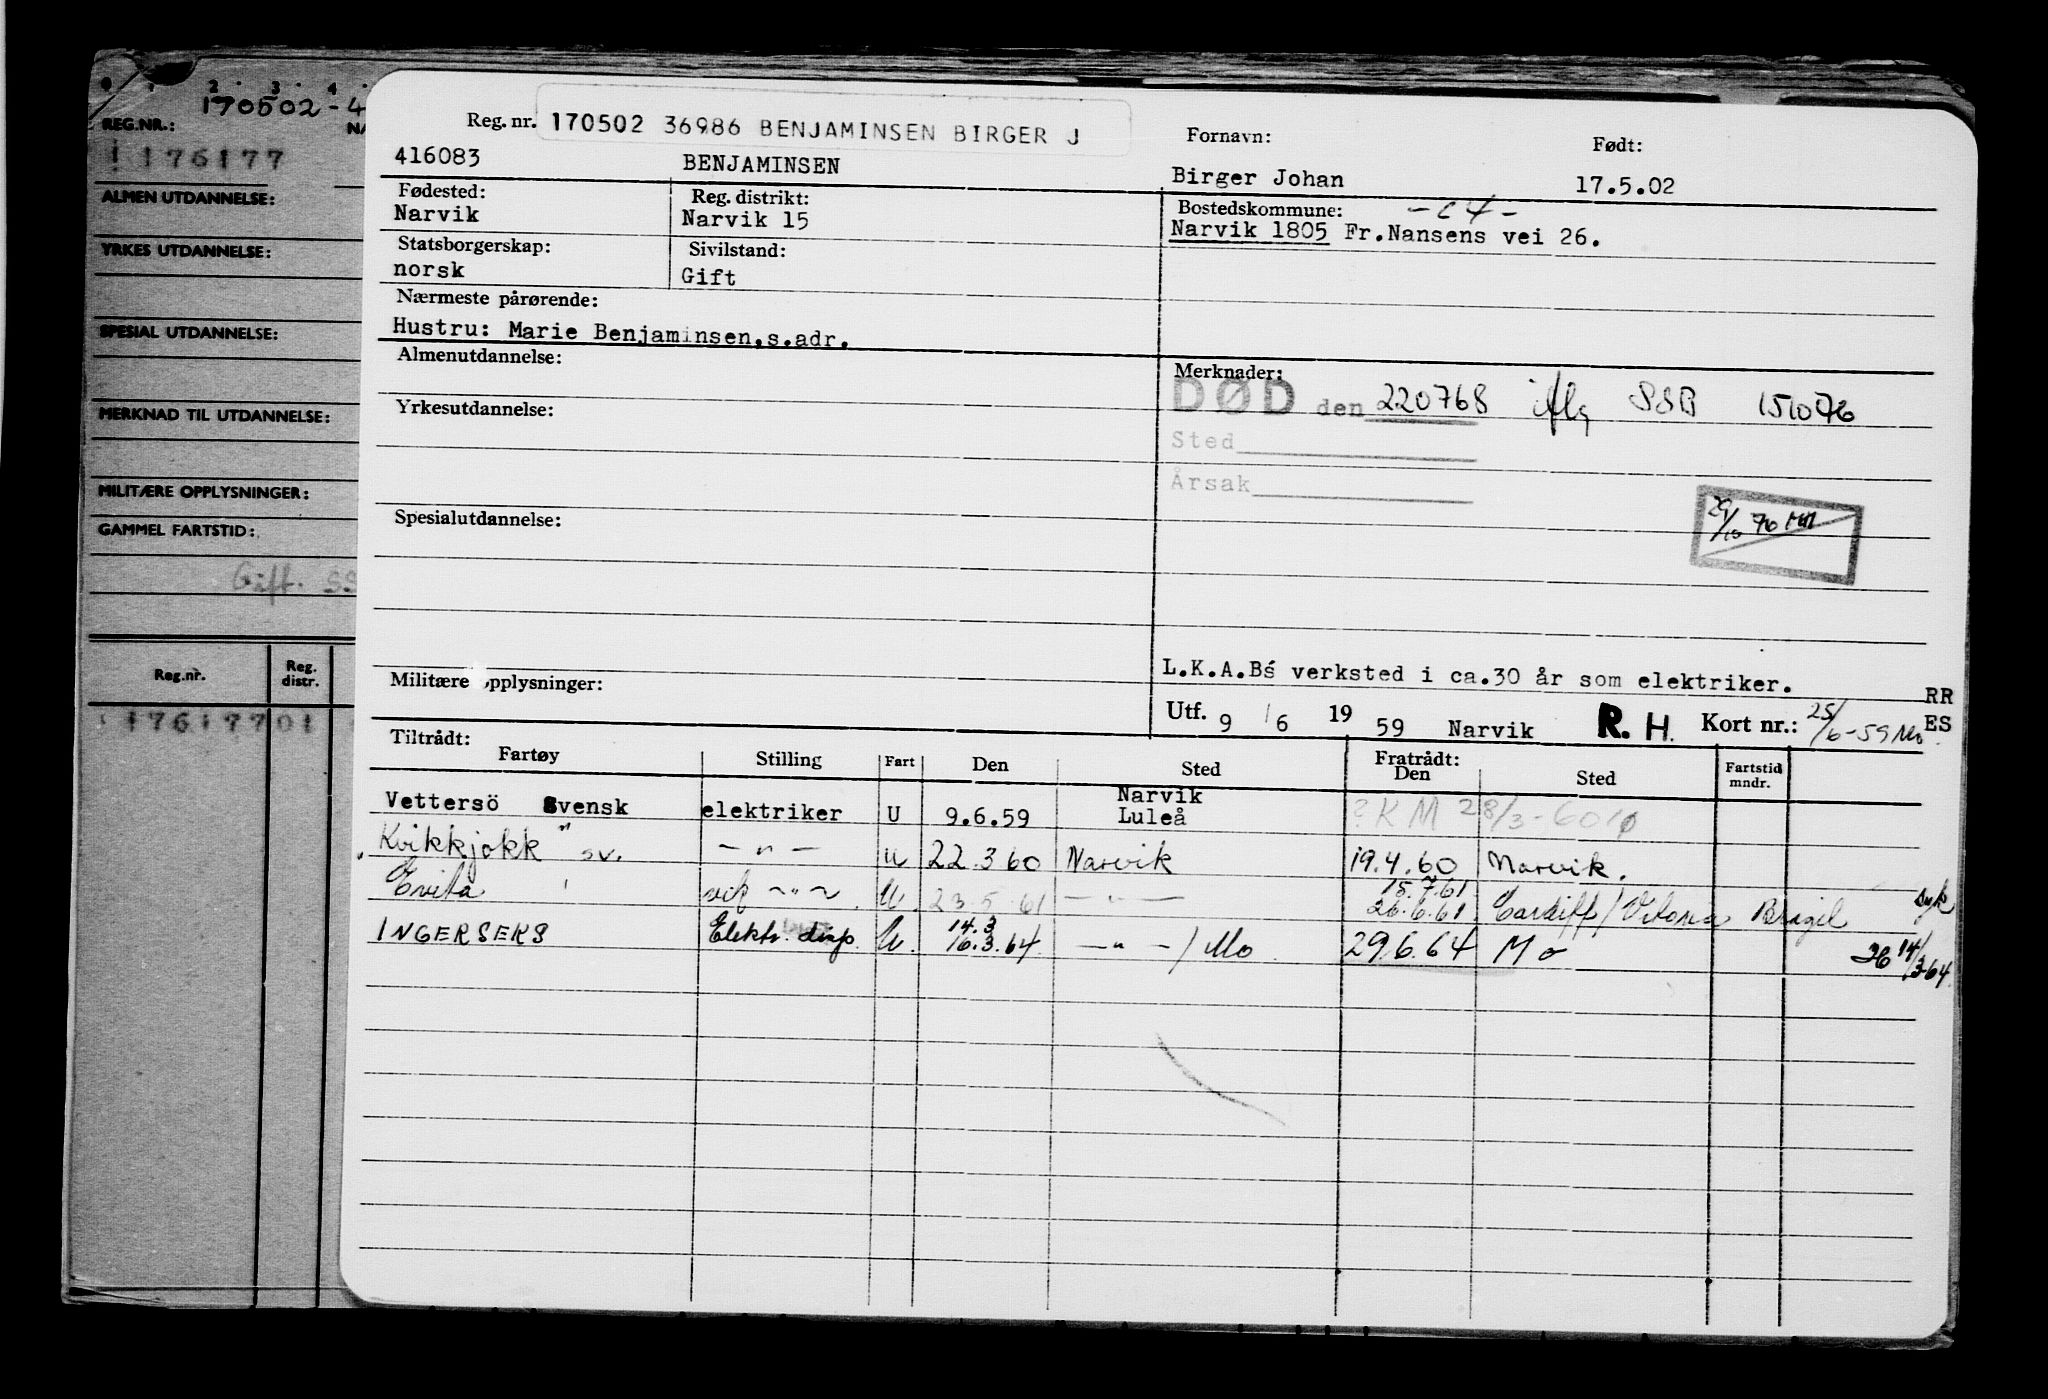 0 1 2 3 4
170502-4
REG.NR.:
1176177
ALMEN UTDANNELSE:
YRKES UTDANNELSE:
SPESIAL UTDANNELSE:
MERKNAD TIL UTDANNELSE:
MILITÆRE OPPLYSNINGER:
GAMMEL FARTSTID:
Gift. SS
Reg.nr. Reg. distr.
117617701
Reg. nr. 170502 36986 BENJAMINSEN BIRGER J Fornavn: Født:
416083 BENJAMINSEN Birger Johan 17.5.02
Fødested: Reg. distrikt: Bostedskommune: -
Narvik Narvik 15 Narvik 1805 Fr.Nansens vei 26.
Statsborgerskap: Sivilstand:
norsk Gift
Nærmeste pårørende:
Hustru: Marie Benjaminsen,s.adr.
Almenutdannelse: Merknader:
DØD den 220768 iflg SSB 151076
Yrkesutdannelse:
Sted
Årsak
29/10 76 MM
Spesialutdannelse:
L.K.A.B's verksted i ca.30 år som elektriker.
Militære opplysninger: RR
Utf. 9 / 6 19 59 Narvik R. H. Kort nr.: 25/6-59 ES
Tiltrådt: Fratrådt:
Fartøy Stilling Fart Den Sted Den Sted Fartstid mndr.
Vettersö Svensk elektriker U 9.6.59 Narvik Luleå ? KM 28/3-60
"Kvikkjokk" sv. - " - U 22.3.60 Narvik 19.4.60 Narvik.
Evita vik - " - U. 23.5.61 - " - 15.7.61 26.6.61 Cardiff/Vitoria Brasil syk
INGERSEKS Elektr. disp. U. 14.3 16.3.64 - " - / Mo 29.6.64 Mo 26 14/3-64.